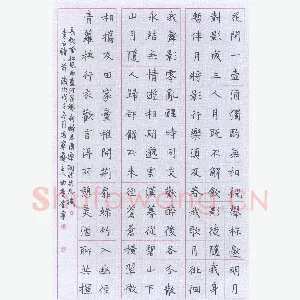 花間一壺酒獨酌無相親舉杯邀明月
對影成三人月既不解飲影徒隨我身
暫伴月將影行樂須及春我歌月徘徊
我舞影零亂醒時同交歡醉後各分散
永結無情遊相期邈雲漢暮從碧山下
山月隨人歸卻顧所來徑蒼蒼橫翠微
相攜及田家童稚開荊扉綠竹入幽徑
青蘿拂行衣歡言得所憩美酒聊共揮
長歌吟松風曲盡河星稀我醉君復樂陶然共忘機
李白詩